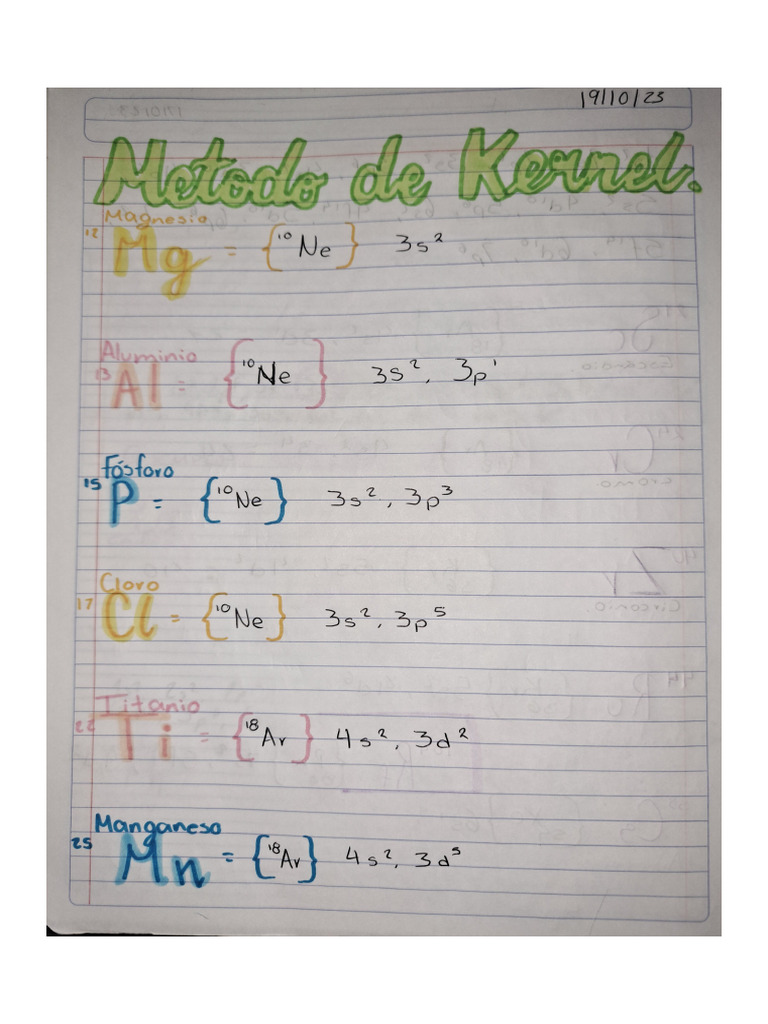 19/10/23
Metodo de Kernel.
Magnesio
12 Mg = {¹⁰Ne} 3s²
Aluminio
13 Al = {¹⁰Ne} 3s², 3p¹
Fósforo
15 P = {¹⁰Ne} 3s², 3p³
Cloro
17 Cl = {¹⁰Ne} 3s², 3p⁵
Titanio
22 Ti = {¹⁸Ar} 4s², 3d²
Manganeso
25 Mn = {¹⁸Ar} 4s², 3d⁵